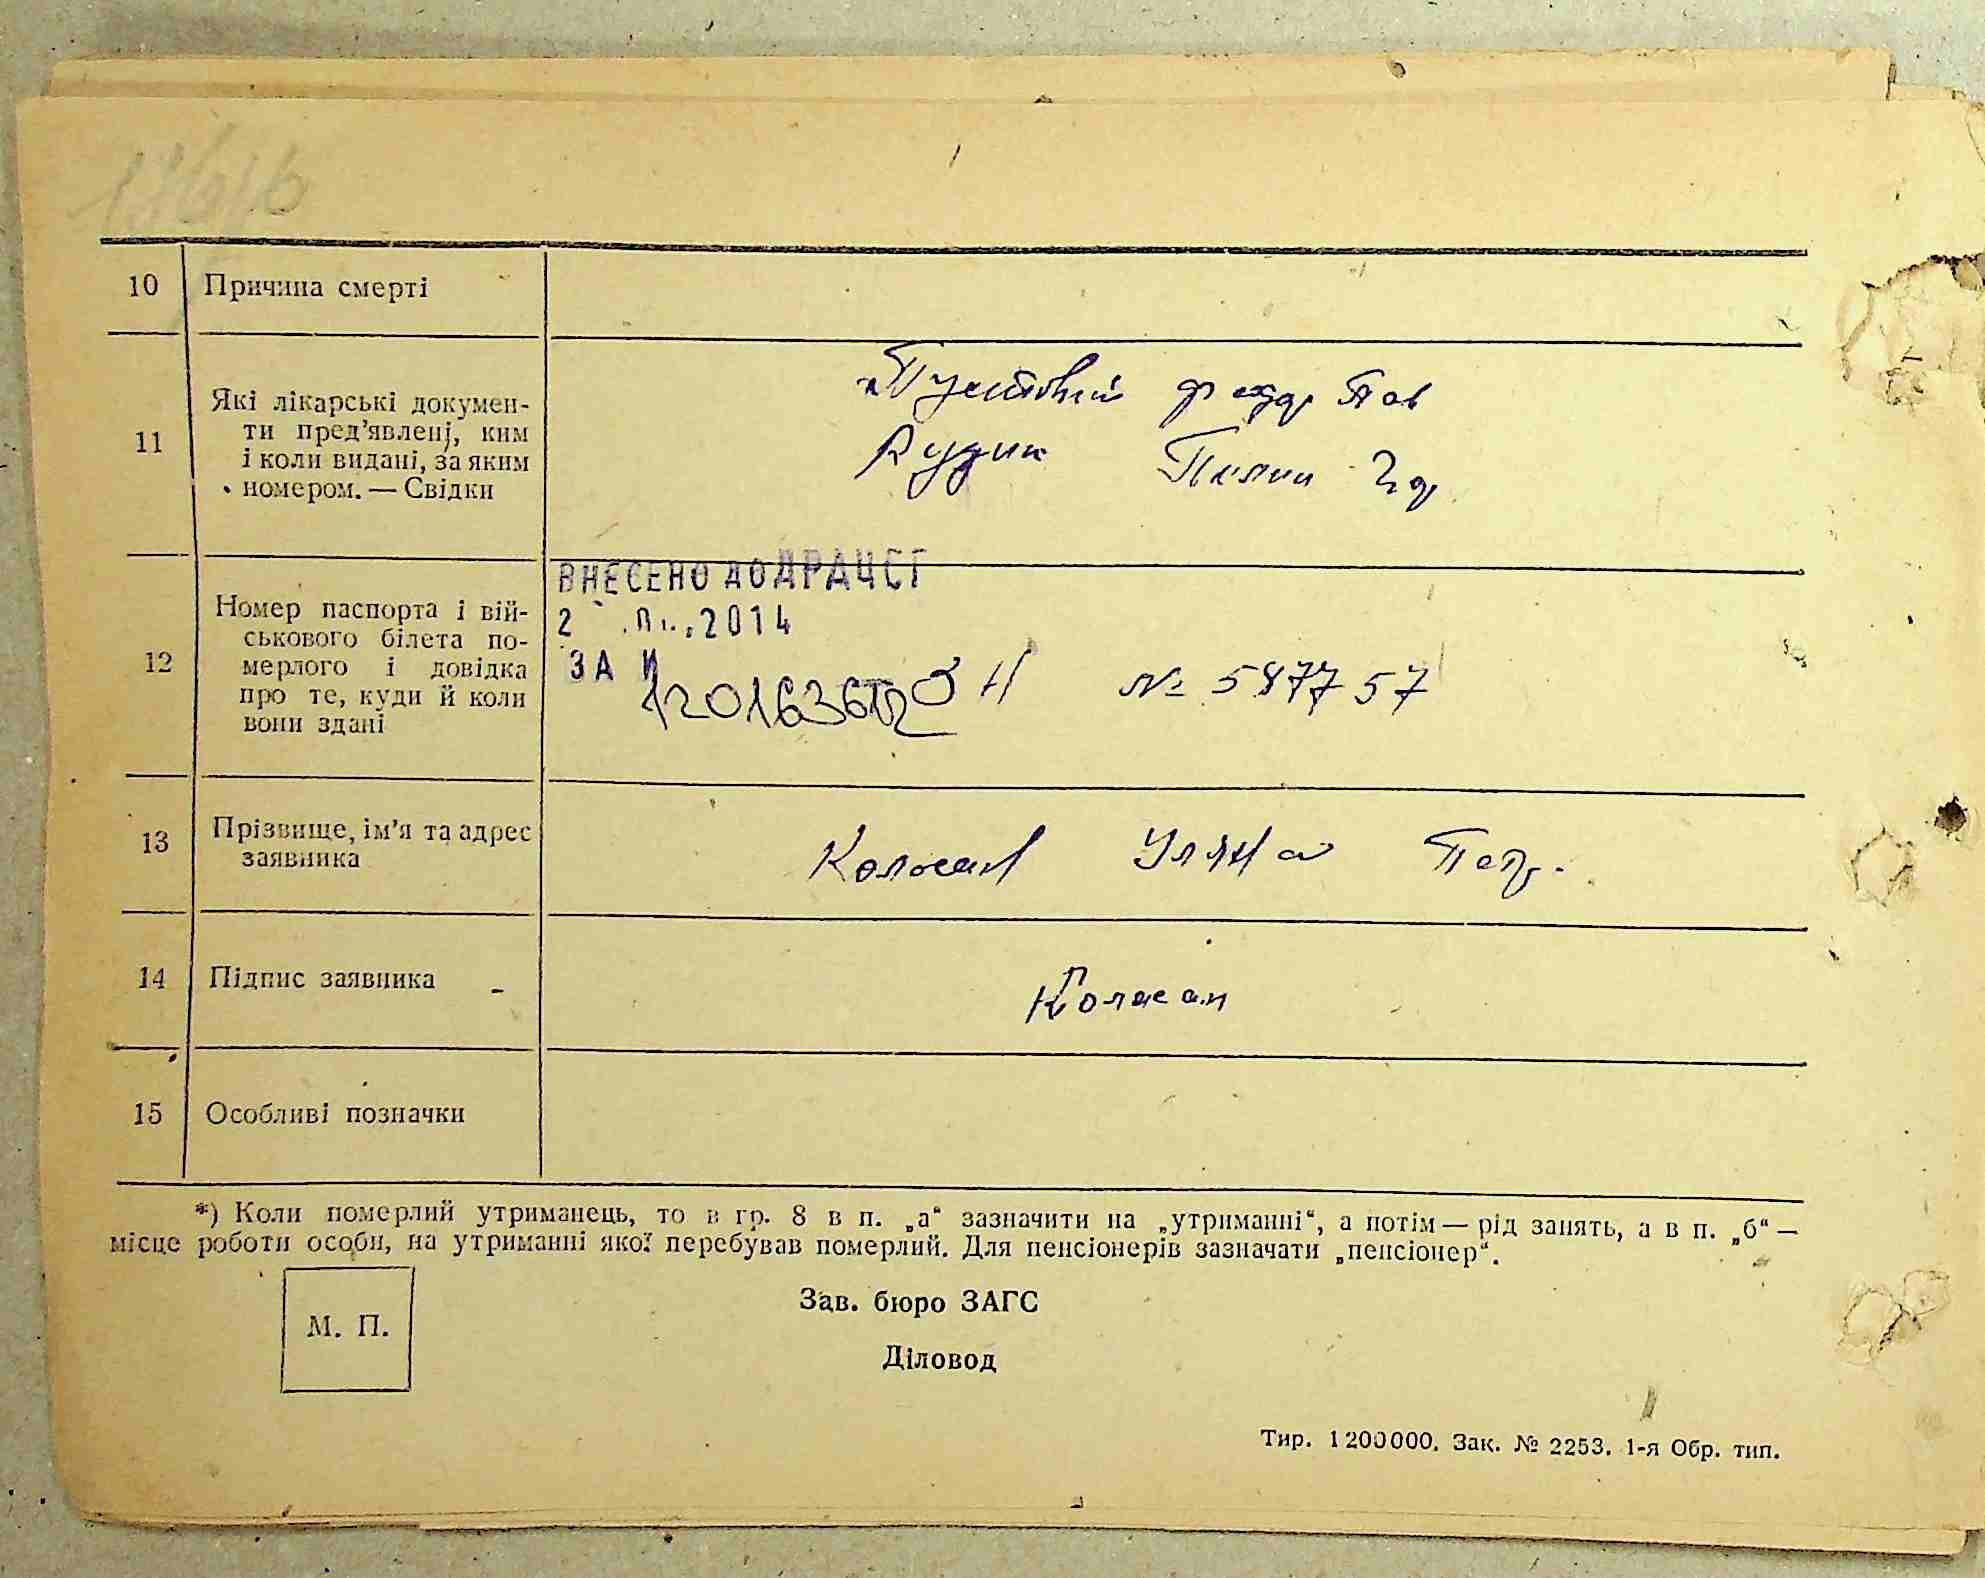 10 Причина смерті
11 Які лікарські докумен-
ти пред'явлені, ким
і коли видані, за яким
номером. — Свідки
Пустовий
Рудик
12 Номер паспорта і вій-
ськового білета по-
мерлого і довідка
про те, куди й коли
вони здані
ВНЕСЕНО ДО ДРАЦСГ
2014
ЗА
№ 587757
13 Прізвище, ім'я та адрес
заявника
Уляна Петр.
14 Підпис заявника -
15 Особливі позначки
*) Коли померлий утриманець, то в гр. 8 в п. „а“ зазначити на „утриманні“, а потім — рід занять, а в п. „б“ —
місце роботи особи, на утриманні якої перебував померлий. Для пенсіонерів зазначати „пенсіонер“.
М. П.
Зав. бюро ЗАГС
Діловод
Тир. 1200000. Зак. № 2253. 1-я Обр. тип.